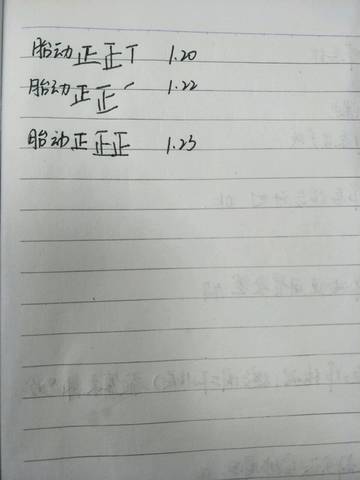 胎动正正丅 1.20
胎动正正一 1.22
胎动正正正 1.23